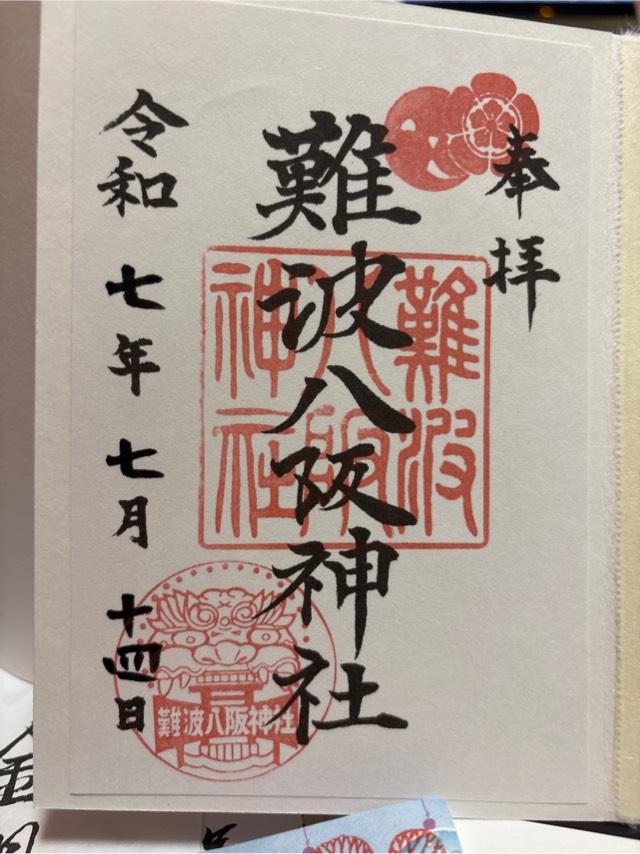 奉拝
難波八阪神社
難波八阪神社
令和七年七月十四日
難波八阪神社